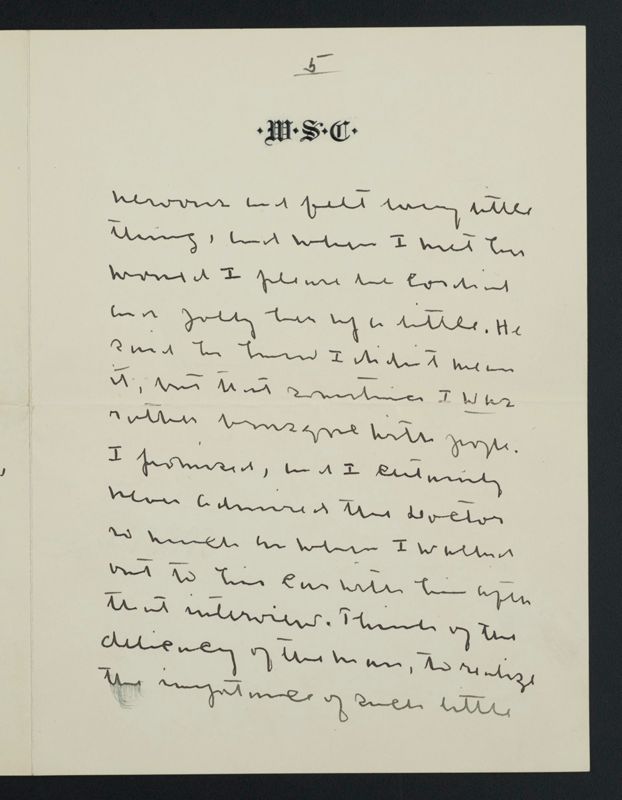 5
·W·S·C·
nervous and felt every little
thing, and when I met him
would I please be cordial
and jolly him up a little. He
said he knew I didn't mean
it, but that sometimes I was
rather brusque with people.
I promised, and I certainly
never admired the Doctor
so much as when I walked
out to his car with him after
that interview. Think of the
delicacy of the man, to realize
the importance of such little